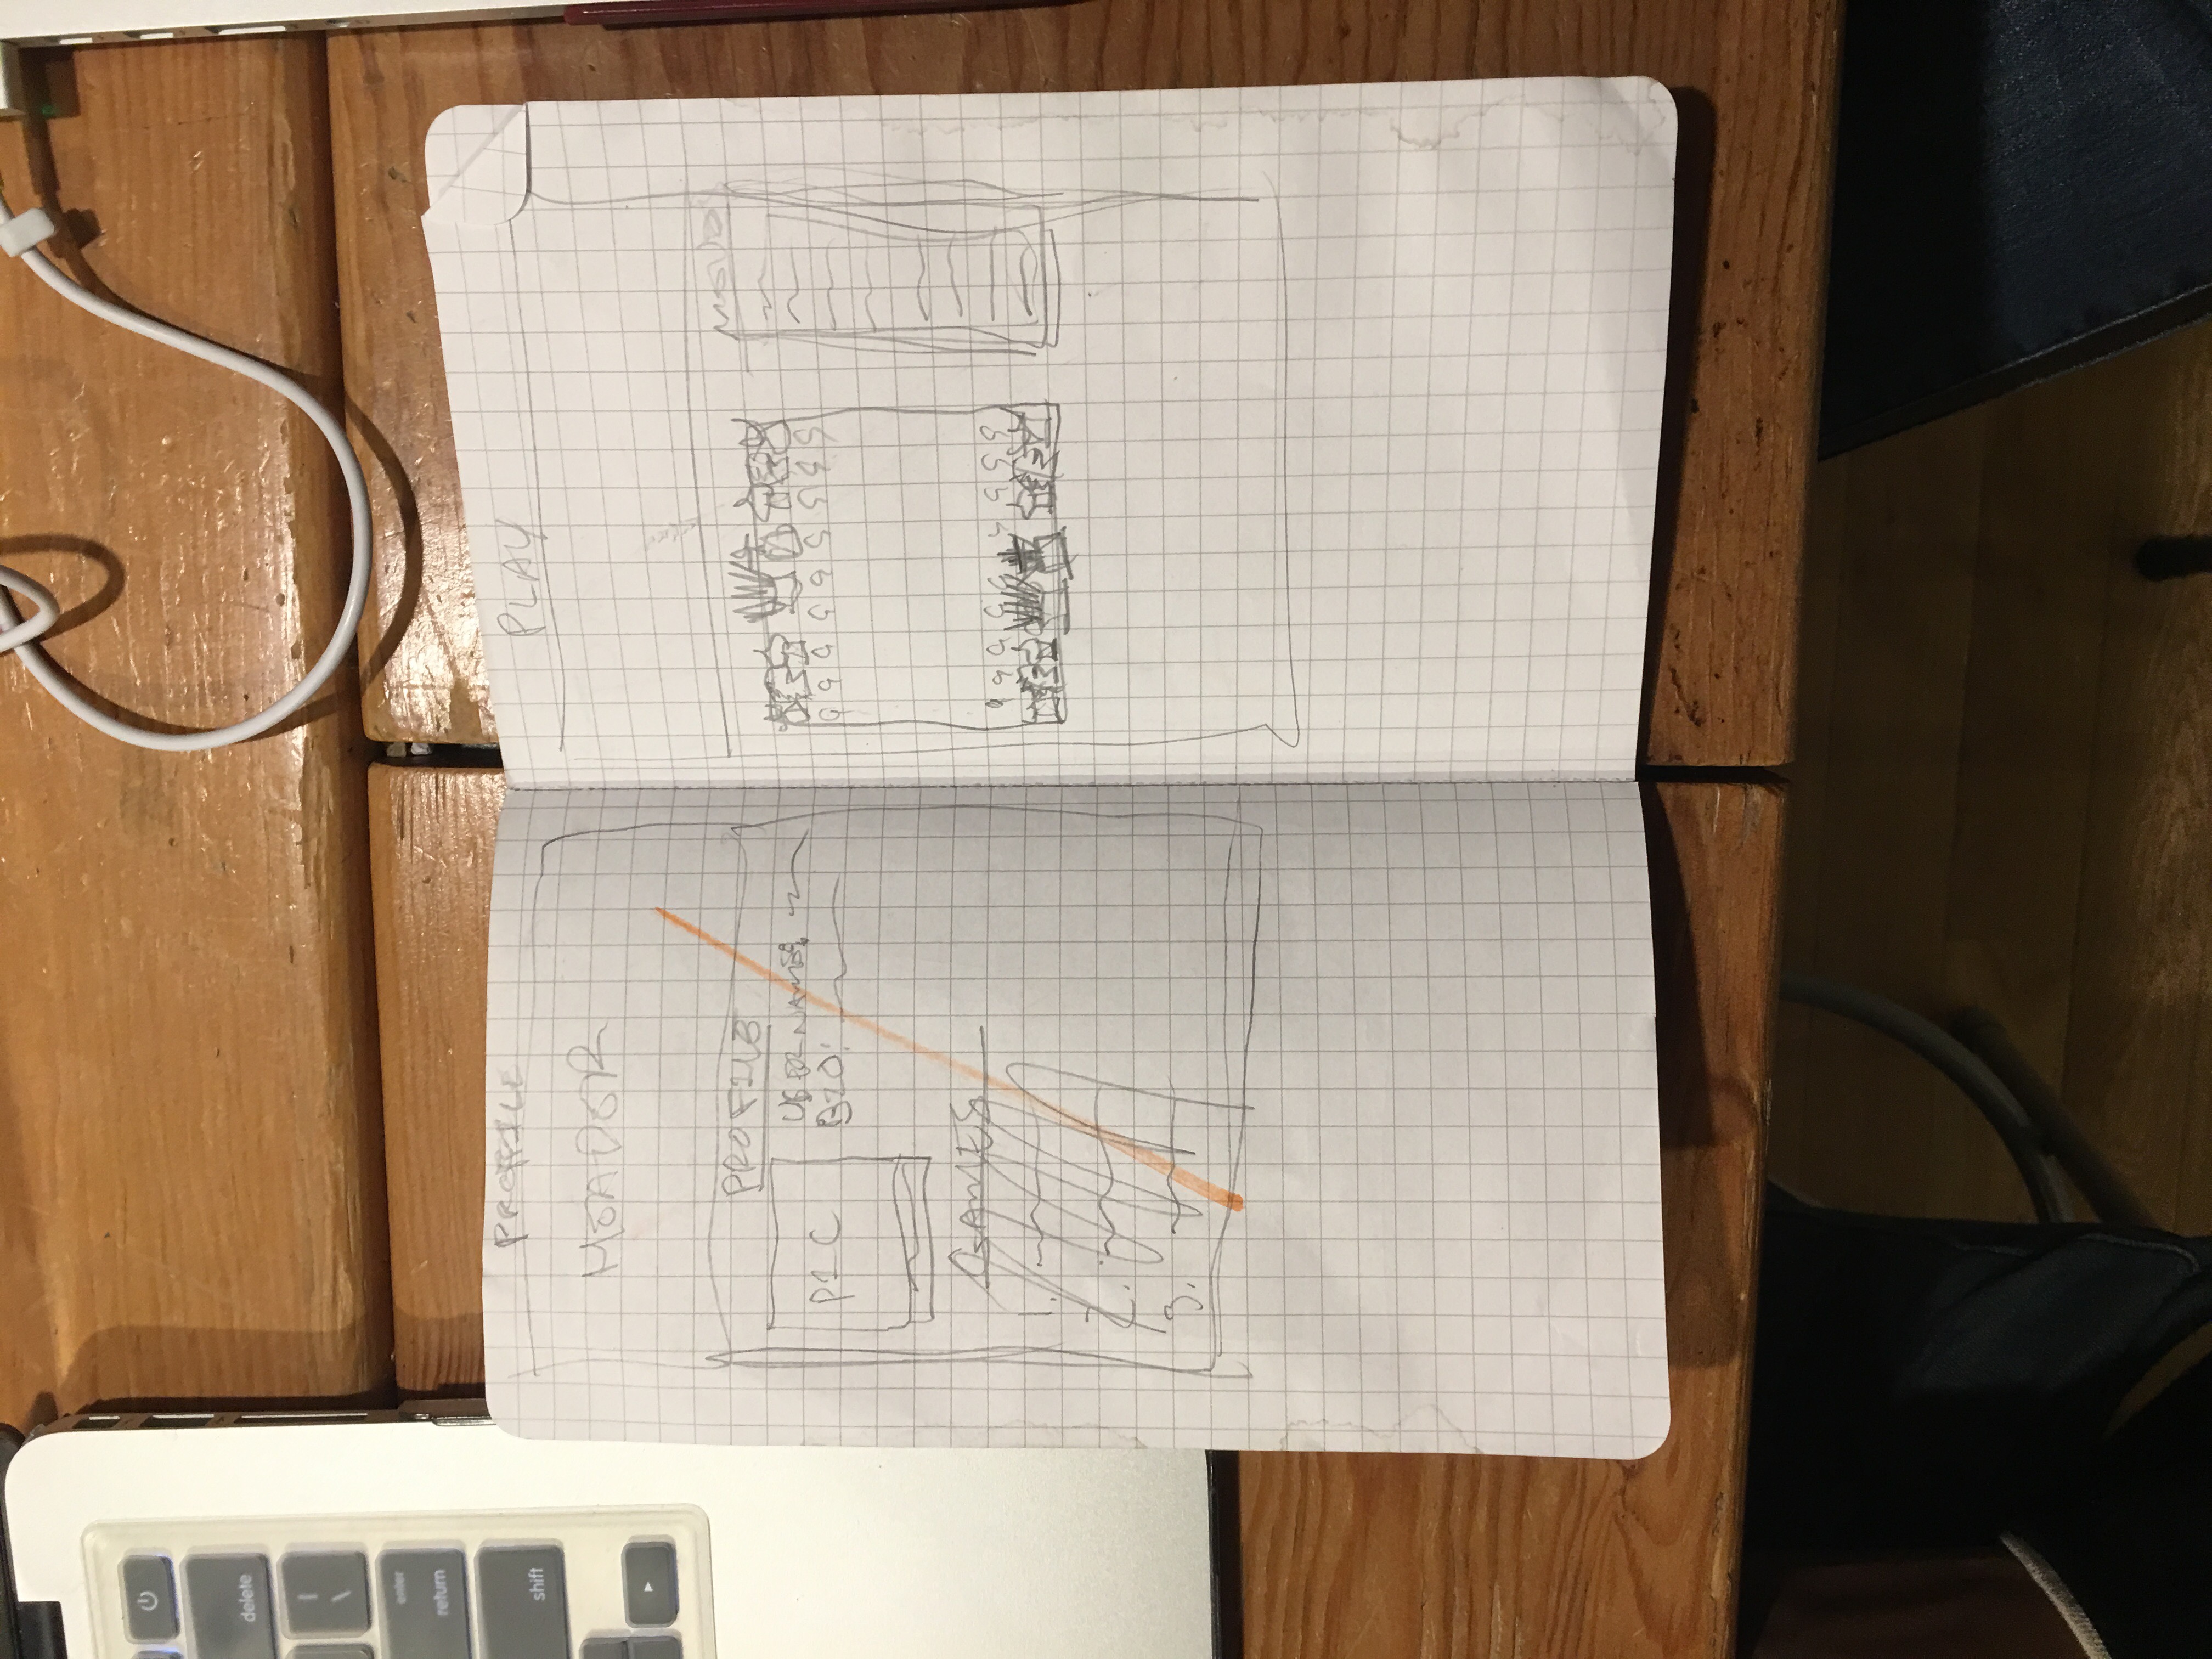 delete
|
\
enter
return
shift
PROFILE
HEADER
PROFILE
PIC
USERNAME:
BIO:
GAMES
1.
2.
3.
PLAY